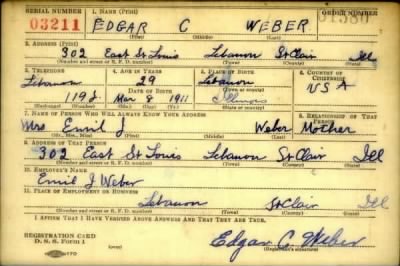 SERIAL NUMBER 1. NAME (Print) ORDER NUMBER
03211 EDGAR C WEBER
(First) (Middle) (Last)
2. ADDRESS (Print)
302 East St Louis Lebanon St Clair Ill
(Number and street or R. F. D. number) (Town) (County) (State)
3. TELEPHONE 4. AGE IN YEARS 5. PLACE OF BIRTH 6. COUNTRY OF CITIZENSHIP
Lebanon 29 Lebanon
DATE OF BIRTH (Town or county) USA
119J. Mar 8 1911 Illinois
(Mo.) (Day) (Yr.) (State or country)
7. NAME OF PERSON WHO WILL ALWAYS KNOW YOUR ADDRESS 8. RELATIONSHIP OF THAT PERSON
Mrs Emil J Weber Mother
(Mr., Mrs., Miss) (First) (Middle) (Last)
9. ADDRESS OF THAT PERSON
302 East St Louis Lebanon St Clair Ill
(Number and street or R. F. D. number) (Town) (County) (State)
10. EMPLOYER'S NAME
Emil J Weber
11. PLACE OF EMPLOYMENT OR BUSINESS
Lebanon St Clair Ill
(Number and street or R. F. D. number) (Town) (County) (State)
I AFFIRM THAT I HAVE VERIFIED ABOVE ANSWERS AND THAT THEY ARE TRUE.
REGISTRATION CARD
D. S. S. Form 1 Edgar C Weber
(Registrant's signature)